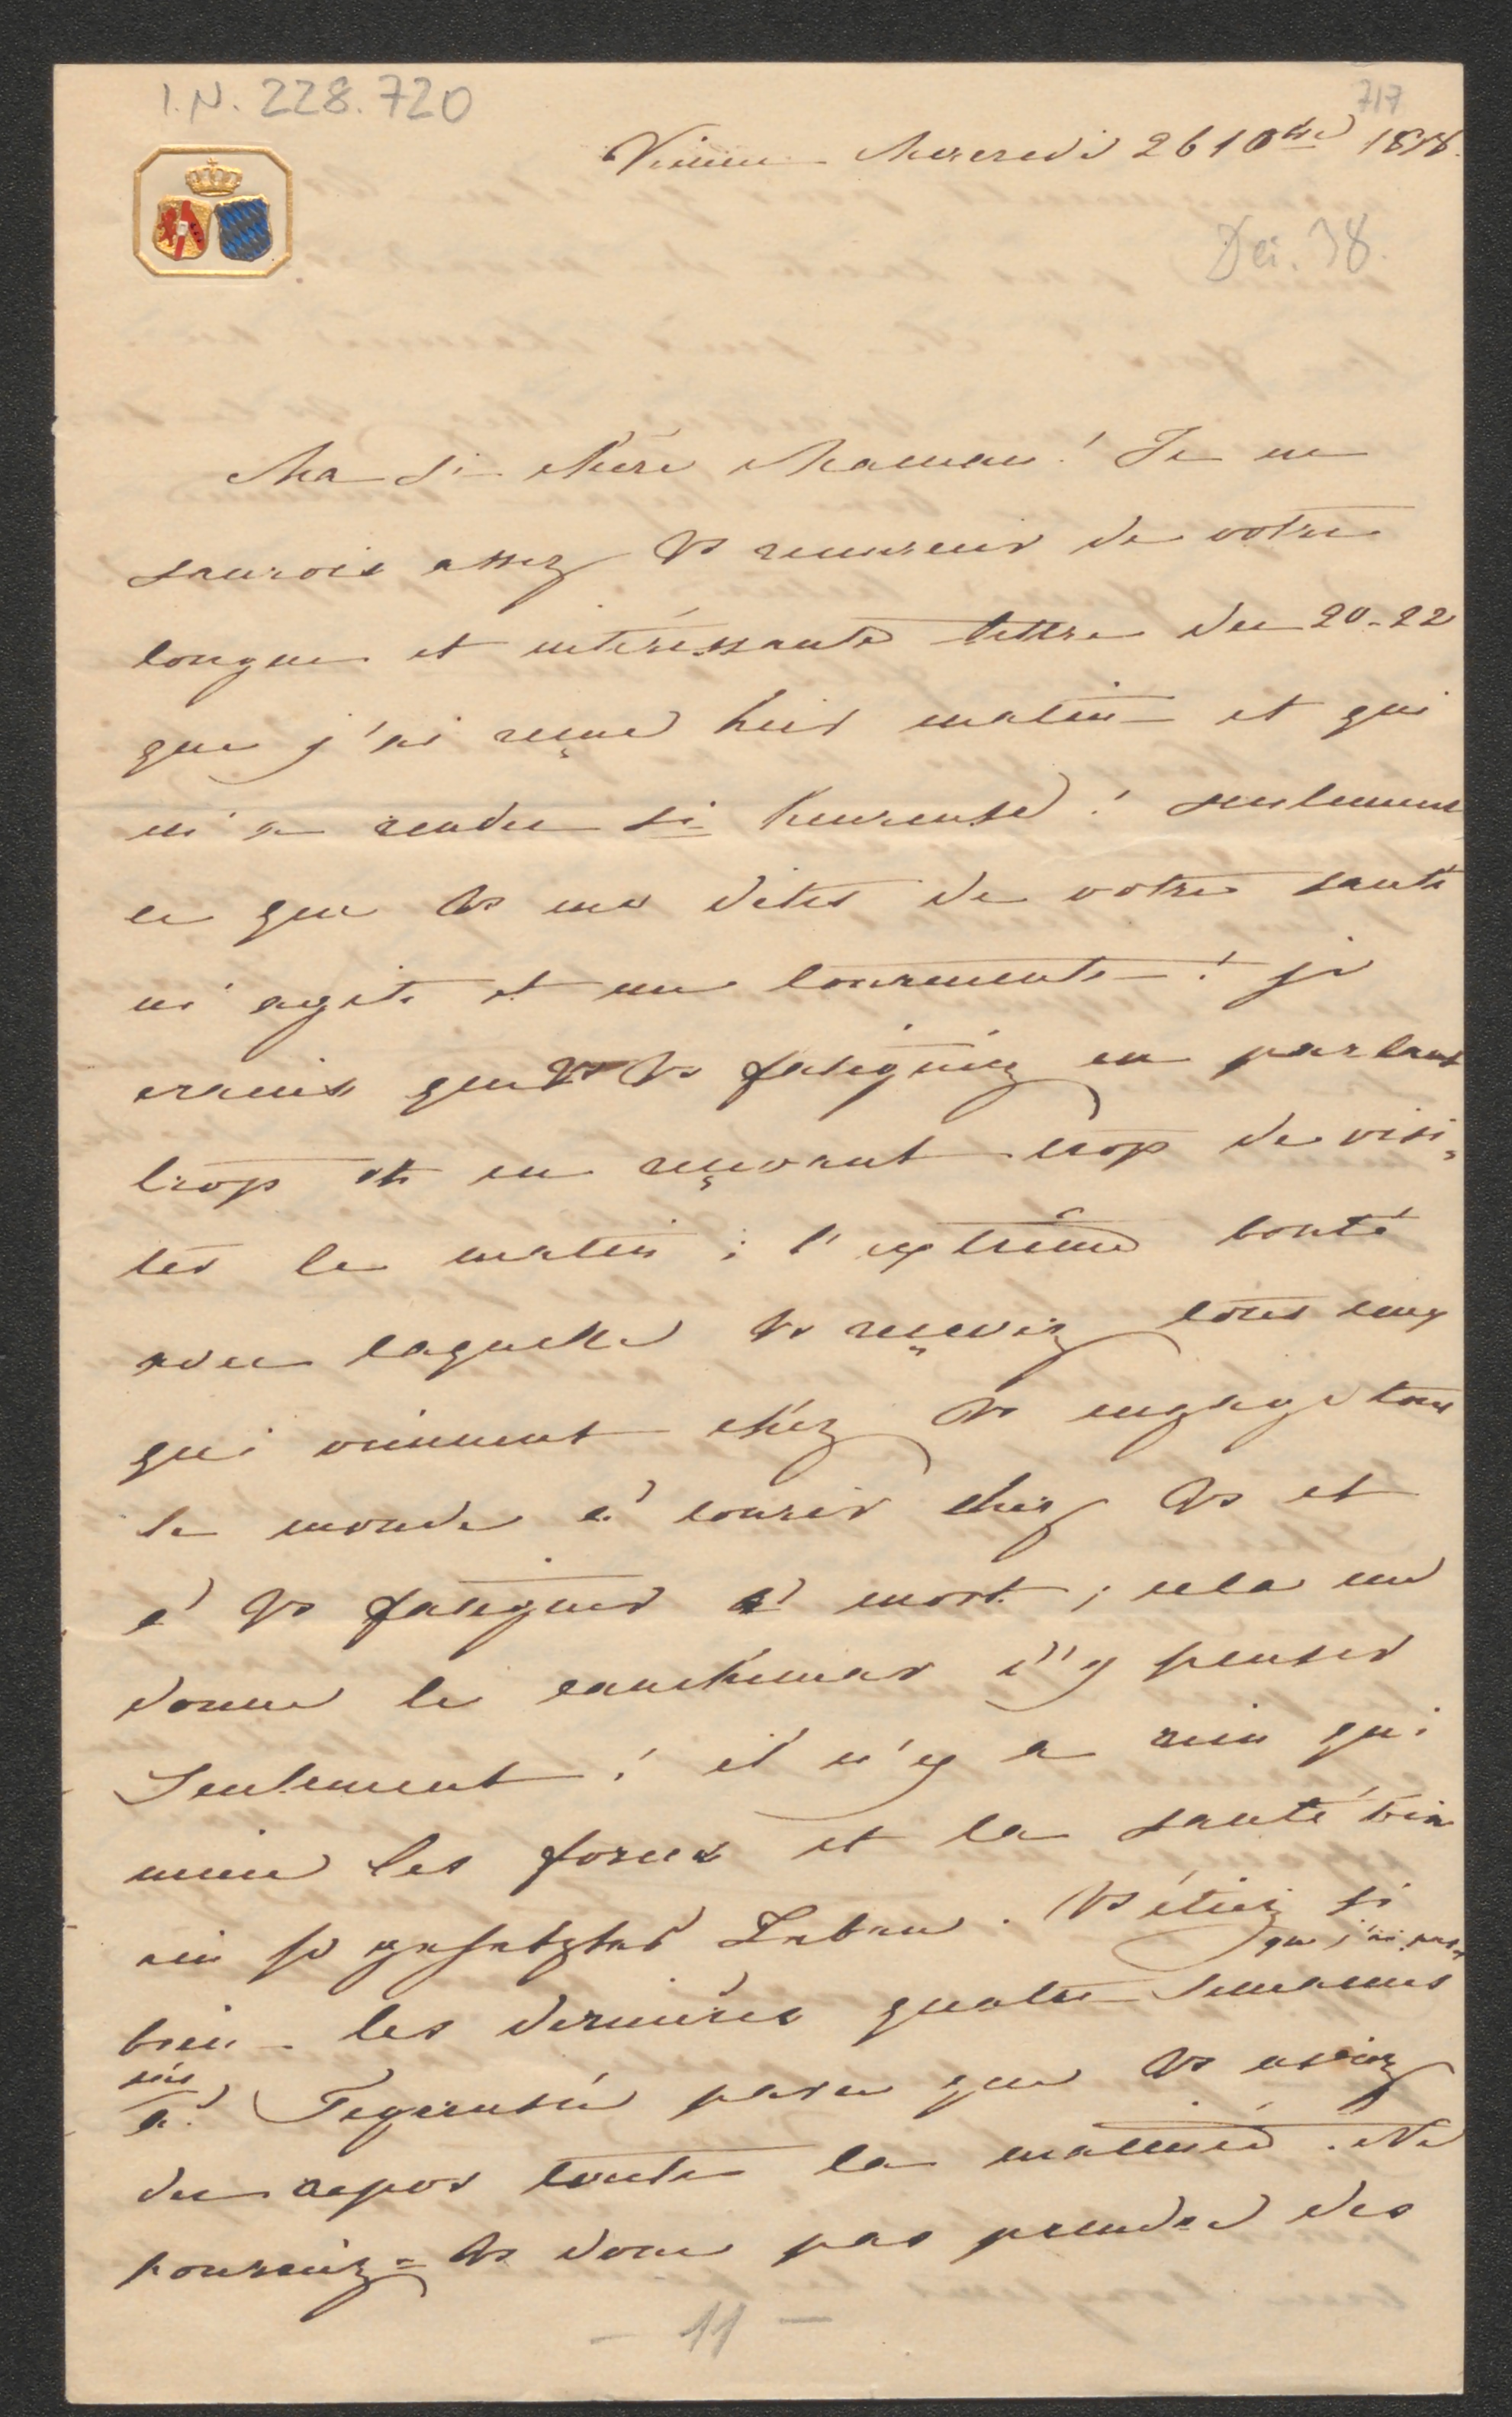 I.N. 228.720
717
Vienne Mercredi 26 10bre 1838.
Dez. 38.
Ma si chère Maman! Je ne
saurois assez vs remercier de votre
longue et intéressante lettre du 20-22
que j'ai reçue hier matin et qui
m'a rendue si heureuse! seulement
ce que vs me dites de votre santé
m'agite et me tourmente! je
crains que vs vs fatiguiez en parlant
trop et en reçevant trop de visi=
tes le matin; l'extrême bonté
avec laquelle vs reçevez tous ceux
qui viennent chez vs engage tout
le monde à courir chez vs et
à vs fatiguer à mort; cela me
donne le cauchemar d'y penser
seulement! il n'y a rien qui
mine les forces et la santé wie
ein so gehetztes Leben. Vs étiez si
bien les dernières quatre semaines
que j'ai pas=
sées
à Tegernsée parce que vs aviez
du repos toute la matinée. Ne
pourriez=vs donc pas prendre des
- 11 -